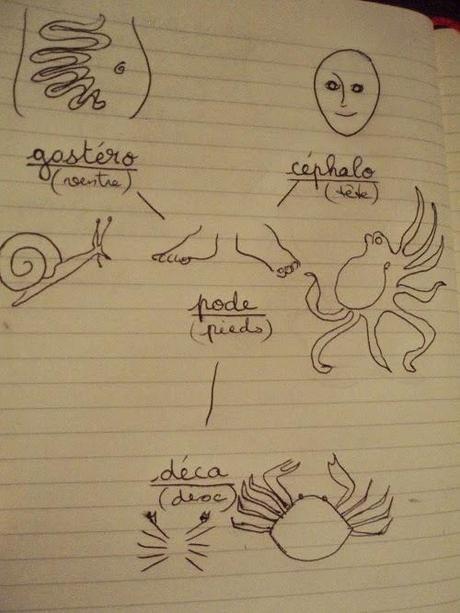 gastéro
(ventre)
céphalo
(tête)
pode
(pieds)
déca
(dix)